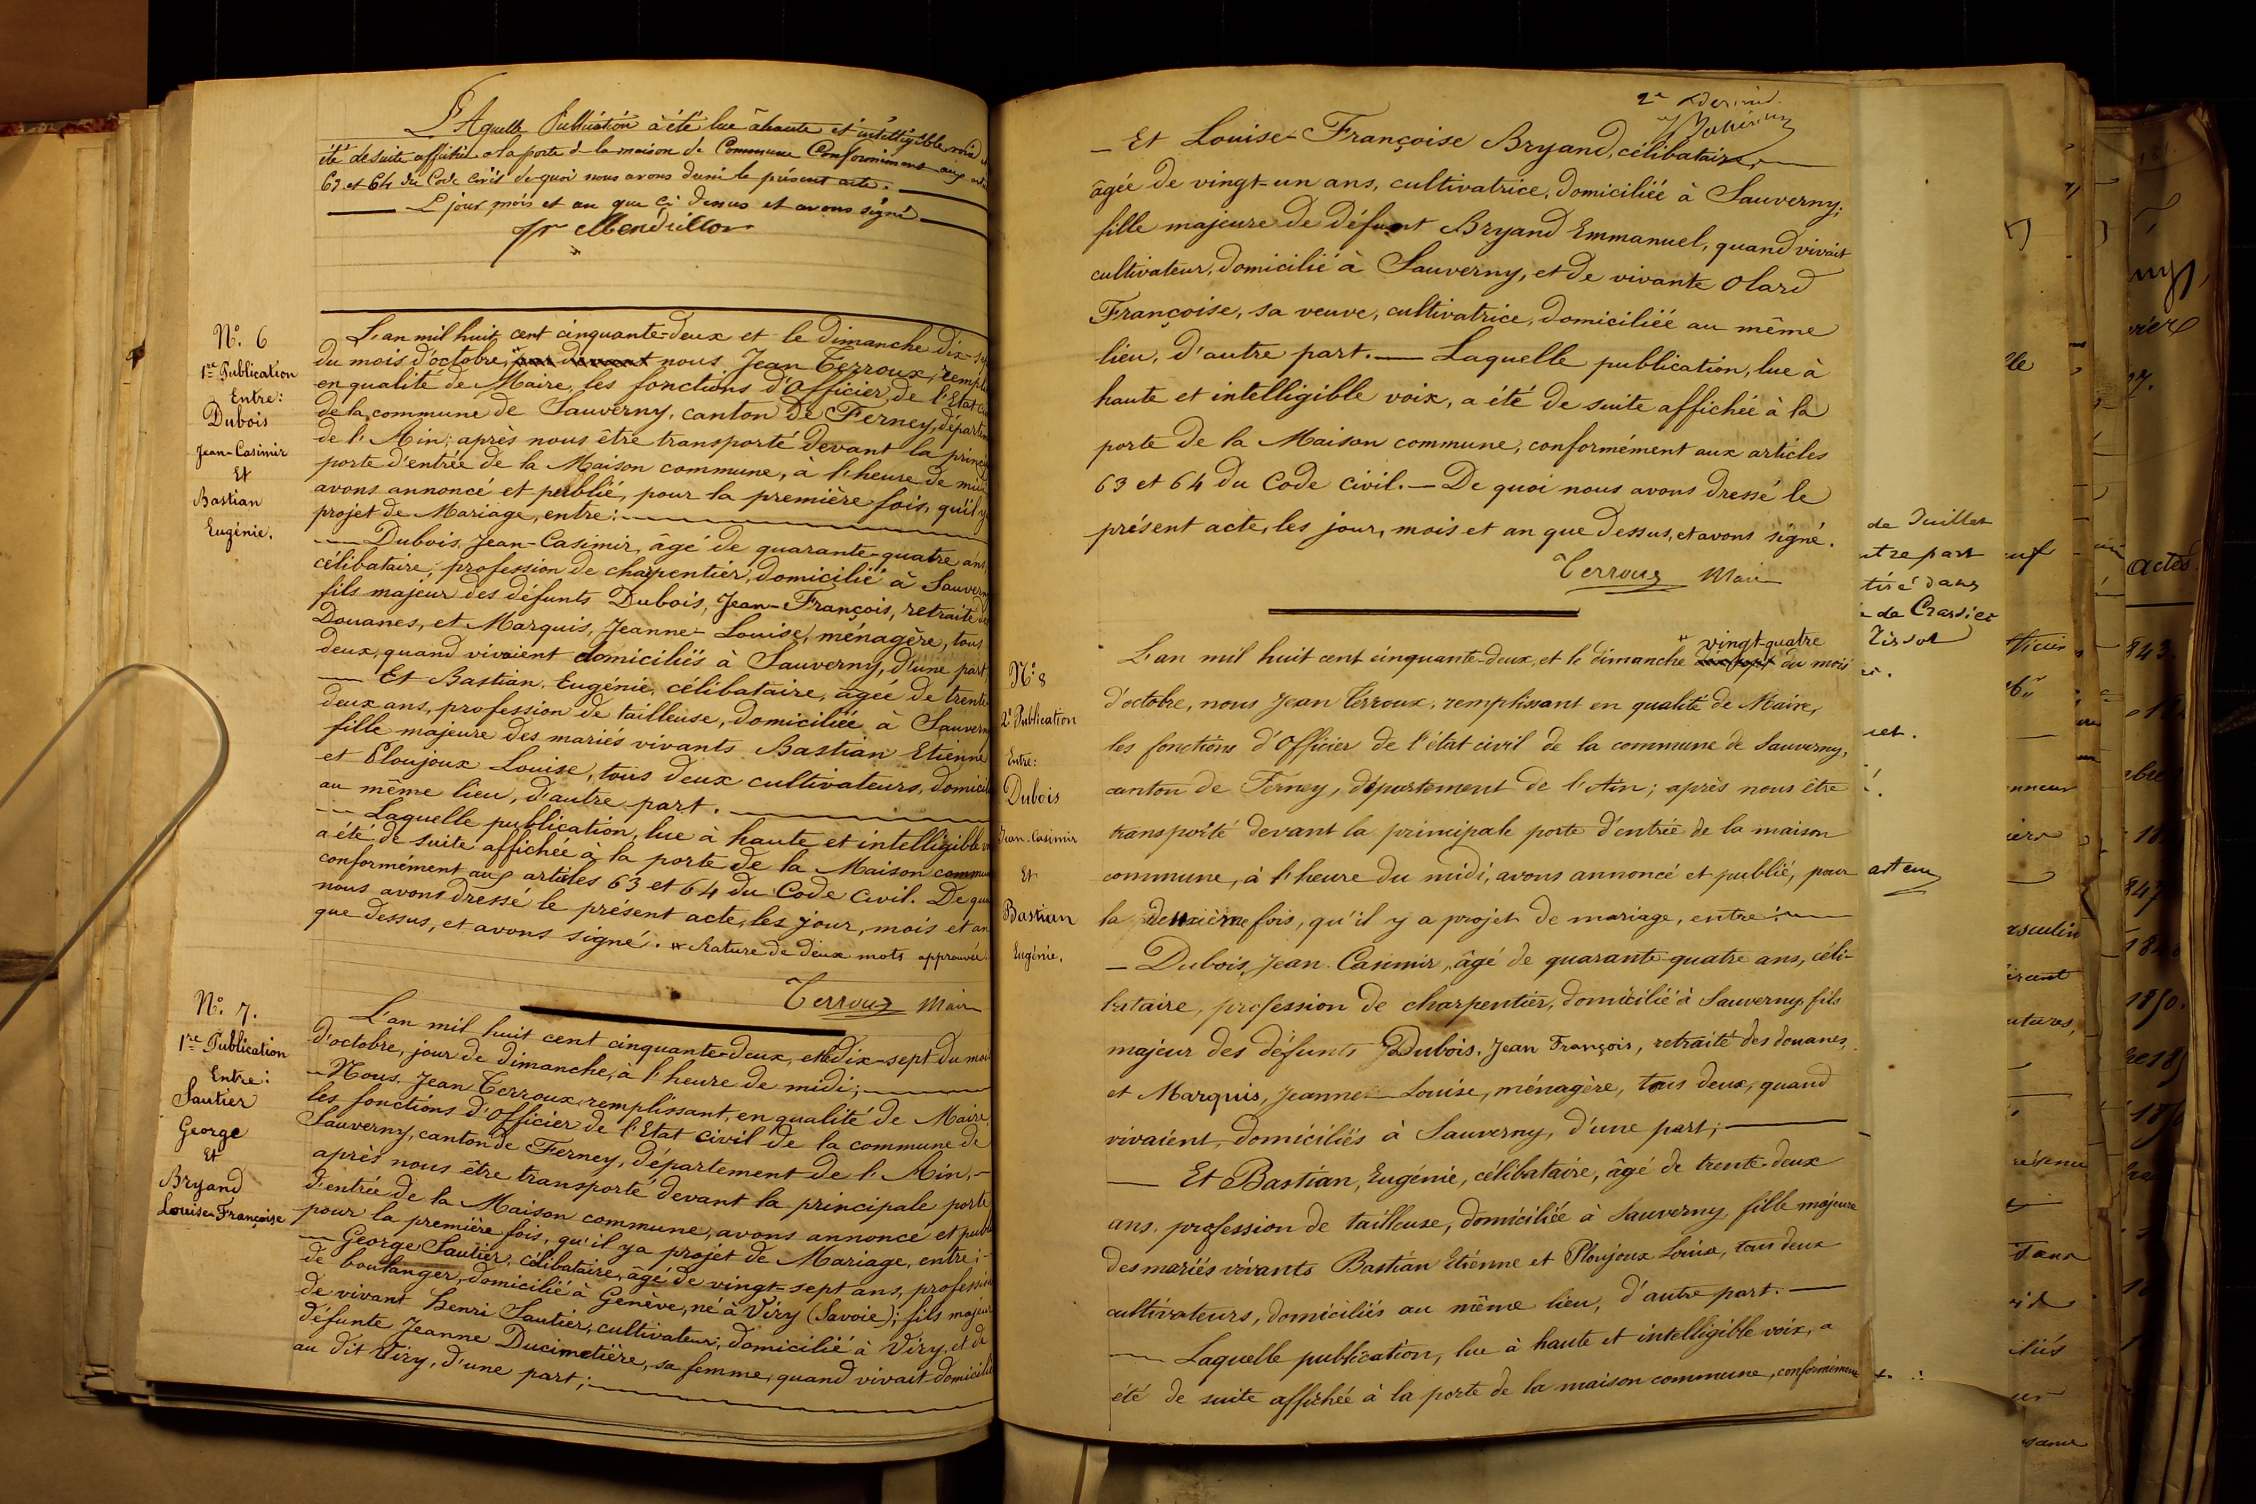 L'Aquelle Publication à été lue àhaute et intelligible voix
été desuite affiché a la porte d la maison de Commune Conformiment aux
63 et 64 du Code Civil de quoi nous avons dressé le présent acte.
L jour mois et an que Ci dessus et avons signé
N.° 6
1re Publication
Entre:
Dubois
Jean-Casimir
Et
Bastian
Eugénie.
L'an mil huit cent cinquante-deux et le dimanche dix-
du mois d'octobre, nous Jean Terroux,
en qualité de Maire, les fonctions d'Officier de l'Etat
de la commune de Sauverny, canton de Ferney,
de l'Ain; après nous être transporté devant la
porte d'entrée de la Maison commune, à l'heure de
avons annoncé et publié, pour la première fois, qu'il y
projet de Mariage, entre:
— Dubois, Jean-Casimir, âgé de quarante-quatre ans
célibataire, profession de charpentier, domicilié à
fils majeur des défunts Dubois, Jean-François, retraité
Douanes, et Marquis, Jeanne-Louise, ménagère, tous
deux, quand vivaient domiciliés à Sauverny, d'une part,
— Et Bastian Eugénie, célibataire, âgée de trente-
deux ans, profession de tailleuse, domiciliée à
fille majeure des mariés vivants Bastian Etienne
et Ploujoux Louise, tous deux cultivateurs,
au même lieu, d'autre part.
— Laquelle publication, lue à haute et intelligible
a été de suite affichée à la porte de la Maison
conformément aux articles 63 et 64 du Code Civil. De
nous avons dressé le présent acte, les jour, mois et an
que dessus, et avons signé. Rature de deux mots approuvée.
Terroux Maire
N.° 7.
1re Publication
Entre:
Sautier
George
Et
Bryand
Louise-Françoise
L'an mil huit cent cinquante-deux, et le dix-sept du
d'octobre, jour de dimanche, à l'heure de midi;
— Nous, Jean Terroux, remplissant, en qualité de Maire,
les fonctions d'Officier de l'Etat civil de la commune de
Sauverny, canton de Ferney, département de l'Ain,—
après nous être transporté devant la principale porte
d'entrée de la Maison commune, avons annoncé et
pour la première fois, qu'il y a projet de Mariage, entre:
— George Sautier, célibataire, âgé de vingt-sept ans,
de boulanger, domicilié à Genève, né à Viry (Savoie); fils
de vivant Henri Sautier, cultivateur, domicilié à Viry, et de
défunte Jeanne Ducimetière, sa femme, quand vivait
au dit Viry, d'une part;
— Et Louise-Françoise Bryand, célibataire,
âgée de vingt-un ans, cultivatrice, domiciliée à Sauverny,
fille majeure de défunt Bryand Emmanuel, quand vivait
cultivateur, domicilié à Sauverny, et de vivante Olard
Françoise, sa veuve, cultivatrice, domiciliée au même
lieu, d'autre part. — Laquelle publication, lue à
haute et intelligible voix, a été de suite affichée à la
porte de la Maison commune, conformément aux articles
63 et 64 du Code Civil. — De quoi nous avons dressé le
présent acte, les jour, mois et an que dessus, et avons signé.
Terroux Maire
N.° 8
2e Publication
Entre:
Dubois
Jean Casimir
Et
Bastian
Eugénie.
vingt-quatre
L'an mil huit cent cinquante-deux, et le dimanche dix-sept du mois
d'octobre, nous Jean Terroux, remplissant en qualité de Maire,
les fonctions d'Officier de l'état civil de la commune de Sauverny,
canton de Ferney, département de l'Ain; après nous être
transporté devant la principale porte d'entrée de la maison
commune, à l'heure du midi, avons annoncé et publié, pour
la deuxième fois, qu'il y a projet de mariage, entre:
— Dubois, Jean Casimir, âgé de quarante-quatre ans, céli-
bataire, profession de charpentier, domicilié à Sauverny, fils
majeur des défunts Dubois, Jean François, retraité des douanes,
et Marquis, Jeanne-Louise, ménagère, tous deux, quand
vivaient, domiciliés à Sauverny, d'une part;
— Et Bastian, Eugénie, célibataire, âgé de trente-deux
ans, profession de tailleuse, domiciliée à Sauverny, fille majeure
des mariés vivants Bastian Etienne et Ploujoux Louise, tous deux
cultivateurs, domiciliés au même lieu, d'autre part.
— Laquelle publication, lue à haute et intelligible voix, a
été de suite affichée à la porte de la maison commune, conformément
de Juillet
tre part
tiré dans
de Crassier
actes.
1850.